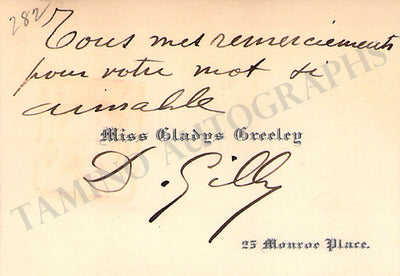 282
Tous mes remerciements
pour votre mot si
aimable
Miss Gladys Greeley
D. Gilly
25 Monroe Place.
TAMINO AUTOGRAPHS